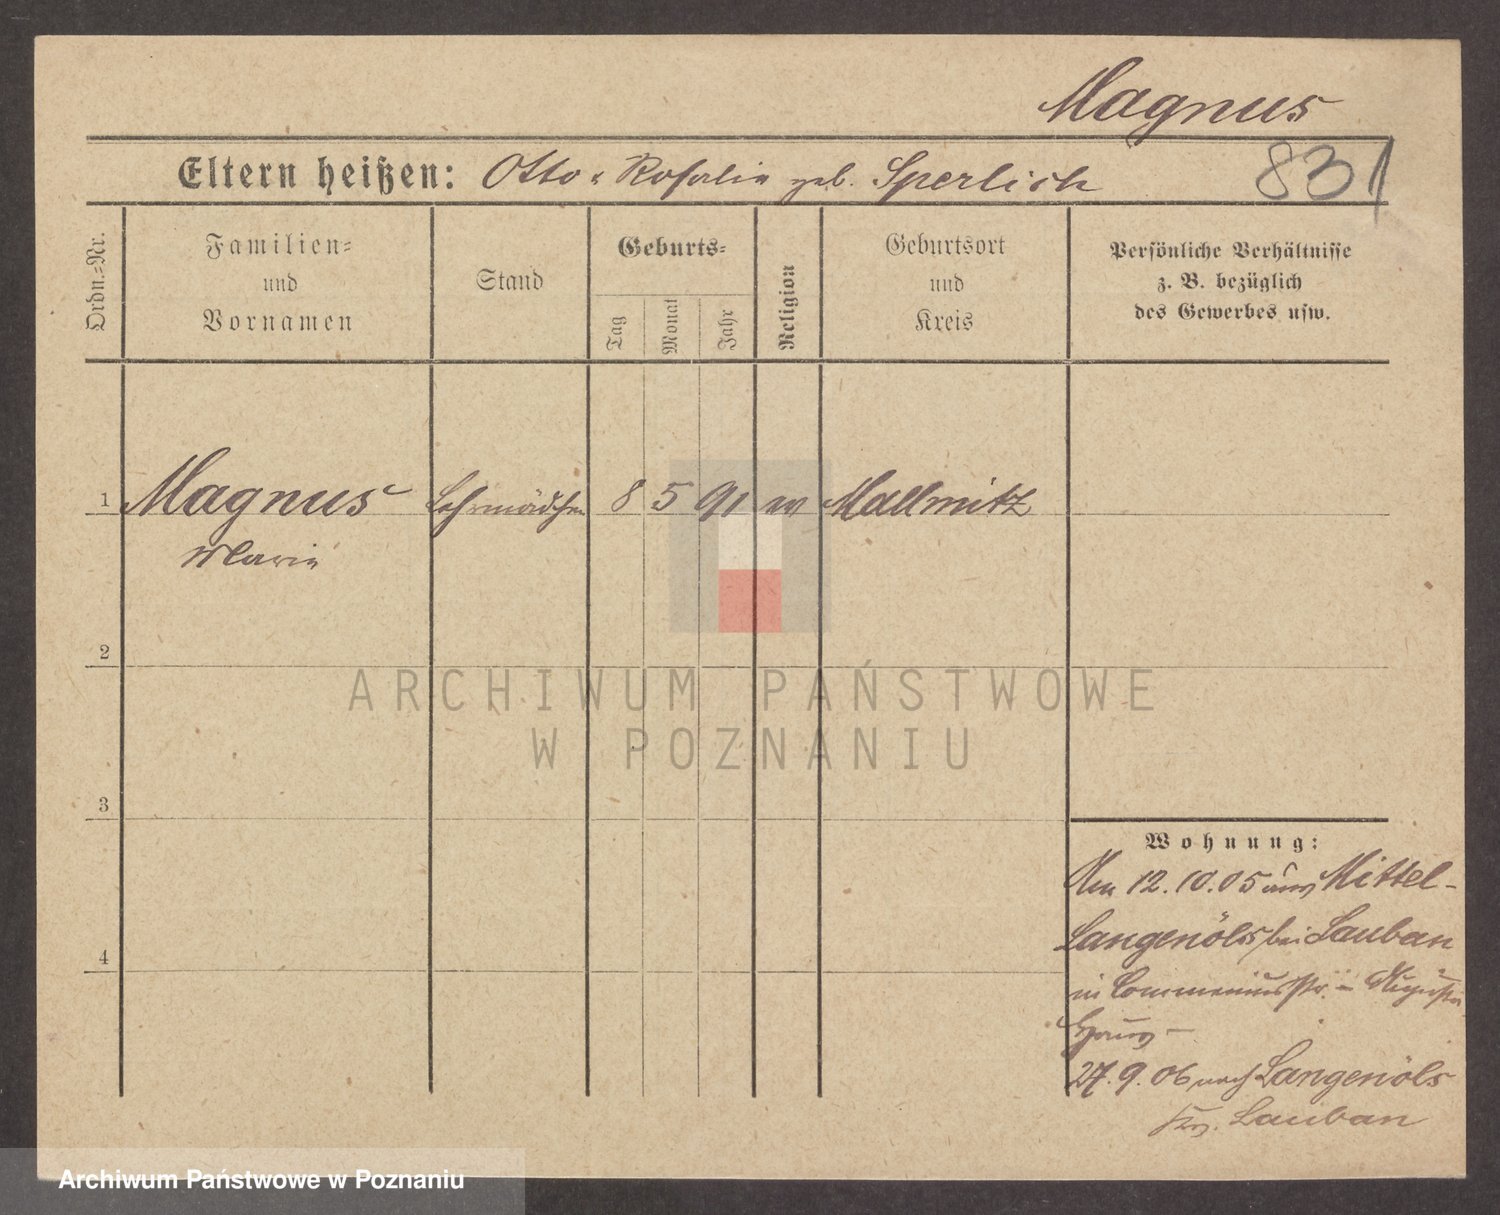 Magnus
Eltern heißen: Otto u Rosalie geb. Sperlich
831
Ordn.=Nr.
Familien=
und
Vornamen
Stand
Geburts=
Tag
Monat
Jahr
Religion
Geburtsort
und
Kreis
Persönliche Verhältnisse
z. B. bezüglich
des Gewerbes usw.
1 Magnus Lehrmädchen 8 5 91 ev Mallmitz
Marie
2
ARCHIWUM PAŃSTWOWE
W POZNANIU
3
Wohnung:
Am 12.10.05 aus Mittel-
Langenöls bei Lauban
in Commeniusstr. - Augusta
Haus -
4
27.9.06 nach Langenöls
Krs. Lauban
Archiwum Państwowe w Poznaniu